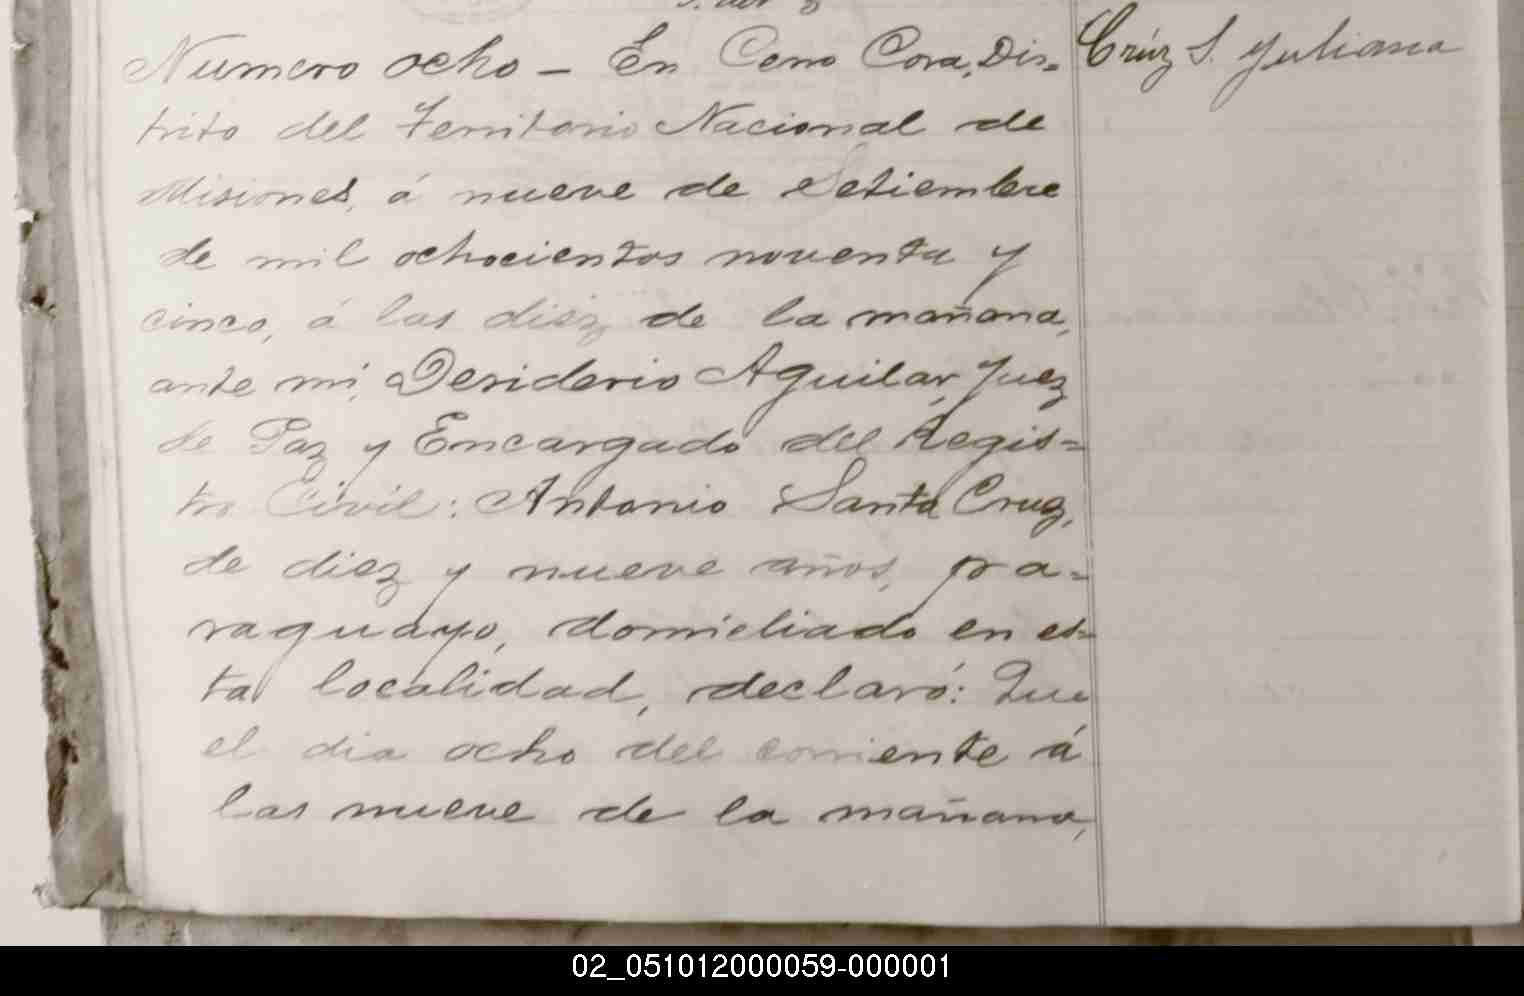 Numero ocho – En Cerro Cora, Dis-
trito del Territorio Nacional de
Misiones, á nueve de Setiembre
de mil ochocientos noventa y
cinco, á las diez de la mañana,
ante mi, Desiderio Aguilar, Juez
de Paz y Encargado del Regis=
tro Civil: Antonio Santa Cruz,
de diez y nueve años, pa=
raguayo, domiciliado en es=
ta localidad, declaró: Que
el dia ocho del corriente á
las nueve de la mañana,
Crúz S. Juliana
02_051012000059-000001